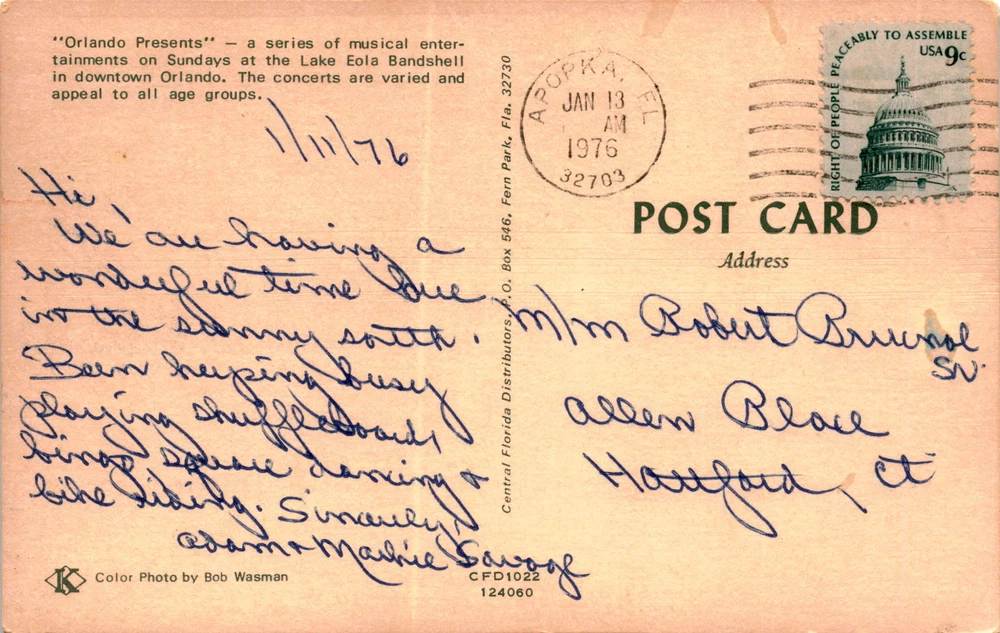 "Orlando Presents" — a series of musical enter-
tainments on Sundays at the Lake Eola Bandshell
in downtown Orlando. The concerts are varied and
appeal to all age groups.
1/11/76
Hi,
We are having a
wonderful time here
in the sunny south.
Been keeping busy
playing shuffleboard,
bingo, square dancing &
bike riding. Sincerely,
Adam &
Central Florida Distributors, P.O. Box 546, Fern Park, Fla. 32730
APOPKA, FL
JAN 13
AM
1976
32703
RIGHT OF PEOPLE PEACEABLY TO ASSEMBLE
USA 9c
POST CARD
Address
M/M Robert
Sr.
Allen Place
Hartford, Ct
K Color Photo by Bob Wasman
CFD1022
124060